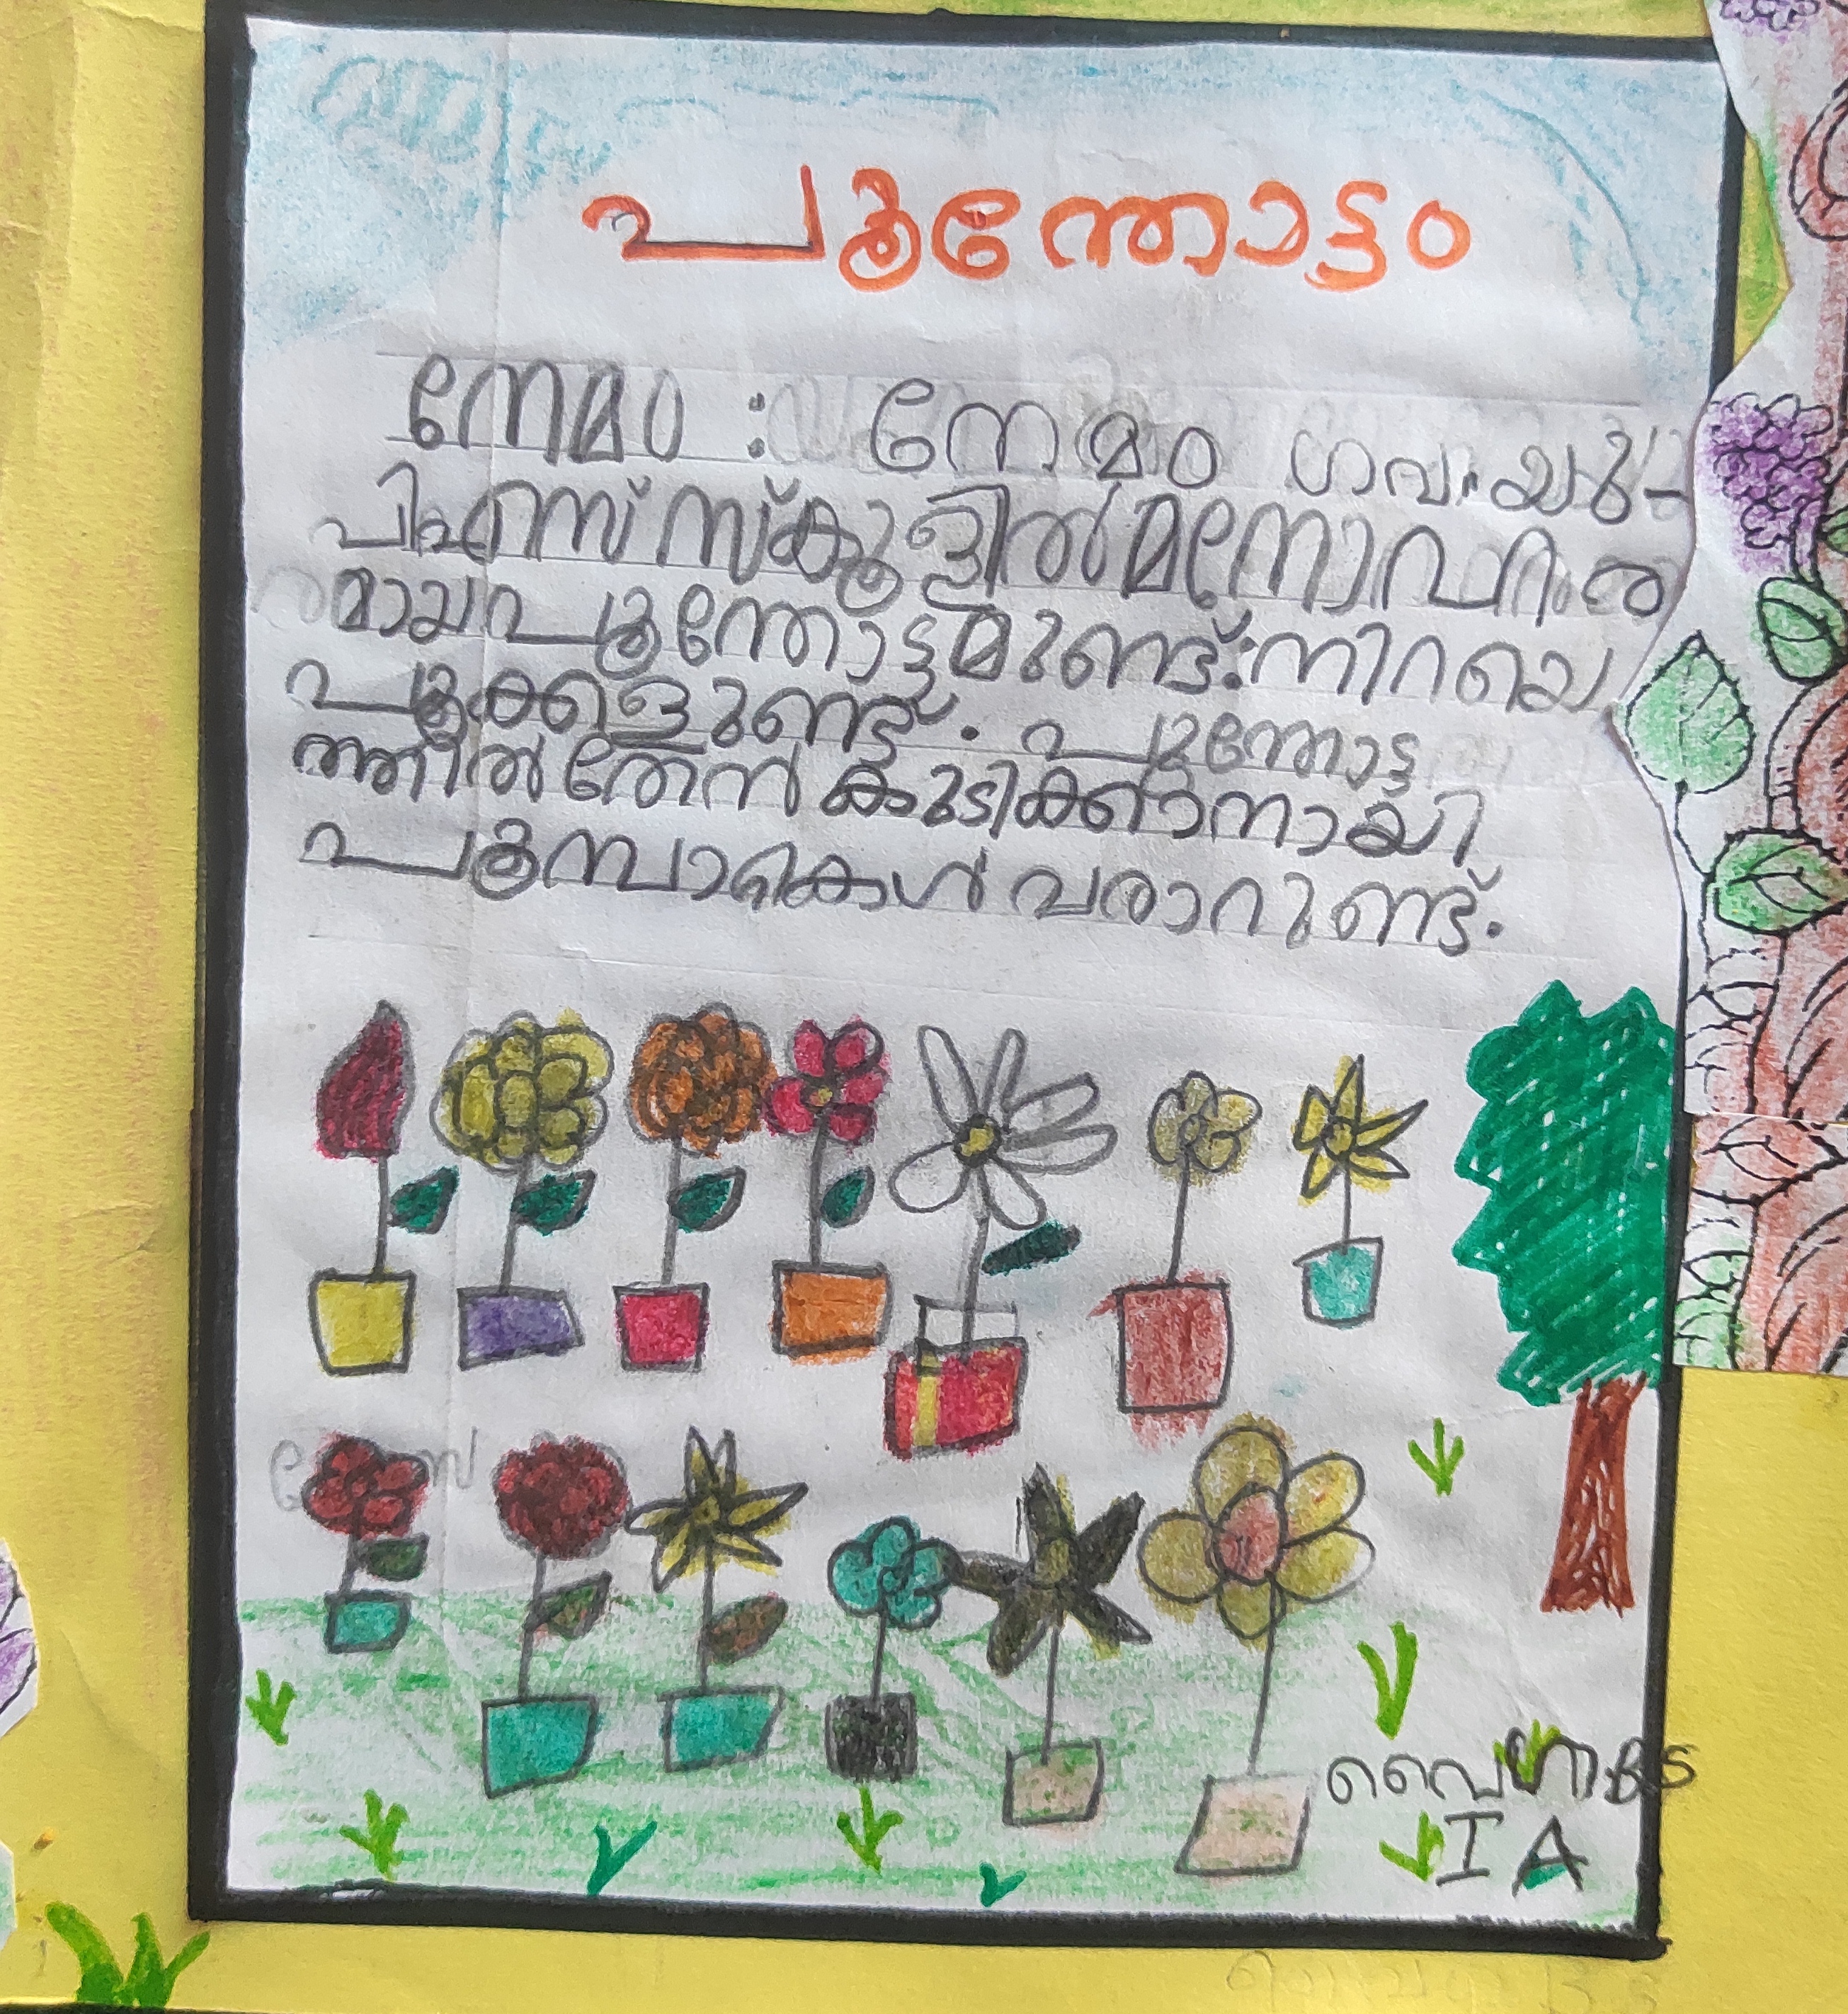 പൂന്തോട്ടം
നേമം : നേമം ഗവ.യു-
പി.എസ് സ്കൂളിൽ മനോഹര
മായ പൂന്തോട്ടമുണ്ട്. നിറയെ
പൂക്കളുണ്ട്. പൂന്തോട്ട
ത്തിൽ തേൻ കുടിക്കാനായി
പൂമ്പാറ്റകൾ വരാറുണ്ട്.
B S
I A